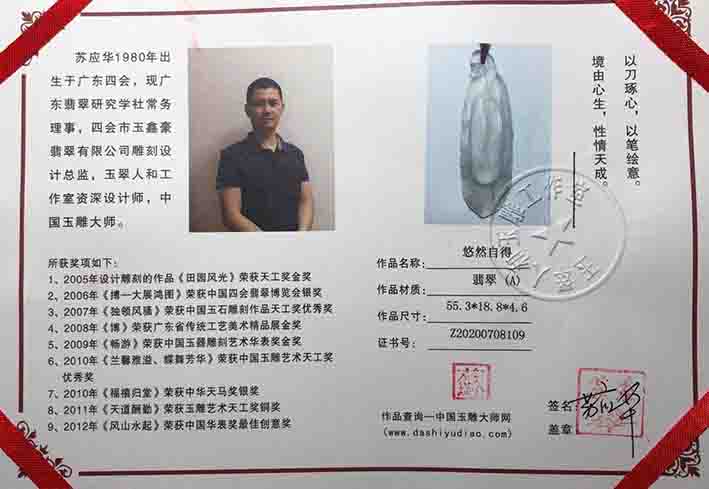 苏应华1980年出
生于广东四会，现广
东翡翠研究学社常务
理事，四会市玉鑫豪
翡翠有限公司雕刻设
计总监，玉翠人和工
作室资深设计师，中
国玉雕大师。
以刀琢心，以笔绘意。
境由心生，性情天成。
所获奖项如下：
1、2005年设计雕刻的作品《田园风光》荣获天工奖金奖
2、2006年《博一大展鸿图》荣获中国四会翡翠博览会银奖
3、2007年《独领风骚》荣获中国玉石雕刻作品天工奖优秀奖
4、2008年《博》荣获广东省传统工艺美术精品展金奖
5、2009年《畅游》荣获中国玉器雕刻艺术华表奖金奖
6、2010年《兰馨雅溢、蝶舞芳华》荣获中国玉雕艺术天工奖
优秀奖
7、2010年《福禧归堂》荣获中华天马奖银奖
8、2011年《天道酬勤》荣获玉雕艺术天工奖铜奖
9、2012年《风山水起》荣获中国华表奖最佳创意奖
作品名称：悠然自得
作品材质：翡翠（A）
作品尺寸：55.3*18.8*4.6
证书号：Z20200708109
作品查询—中国玉雕大师网
(www.dashiyudiao.com)
签名：苏应华
盖章：